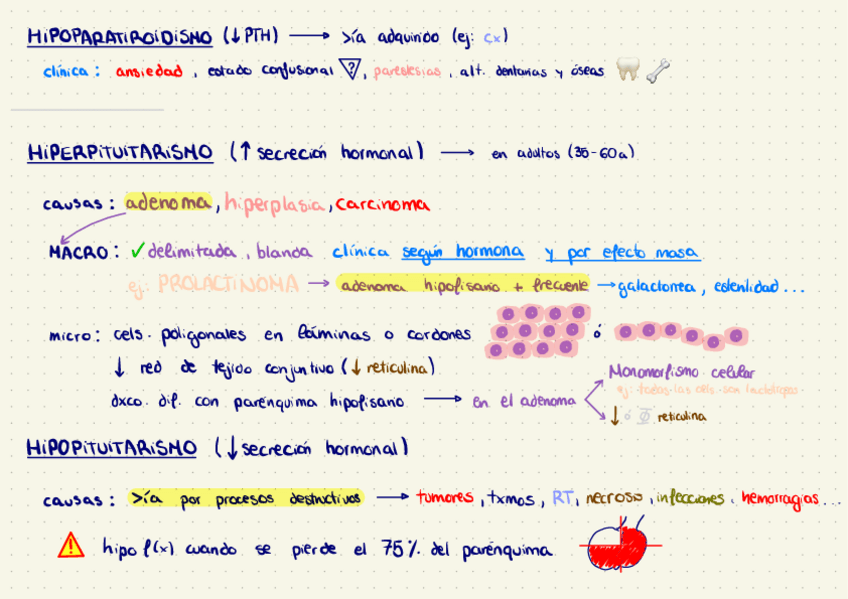 HIPOPARATIROIDISMO (↓ PTH) → >ía adquirido (ej: cx)
clínica: ansiedad, estado confusional ?, parestesias, alt. dentarias y óseas
HIPERPITUITARISMO (↑ secreción hormonal) → en adultos (35-60a)
causas: adenoma, hiperplasia, carcinoma
MACRO: ✓ delimitada, blanda clínica según hormona y por efecto masa
ej: PROLACTINOMA → adenoma hipofisario + frecuente → galactorrea, esterilidad...
micro: cels. poligonales en láminas o cordones ó
↓ red de tejido conjuntivo (↓ reticulina)
Monomorfismo celular
ej: todas las cels. son lactotropas
dxco. dif. con parénquima hipofisario → en el adenoma
↓ ó Ø reticulina
HIPOPITUITARISMO (↓ secreción hormonal)
causas: >ía por procesos destructivos → tumores, txmos, RT, necrosis, infecciones, hemorragias...
hipo f(x) cuando se pierde el 75% del parénquima